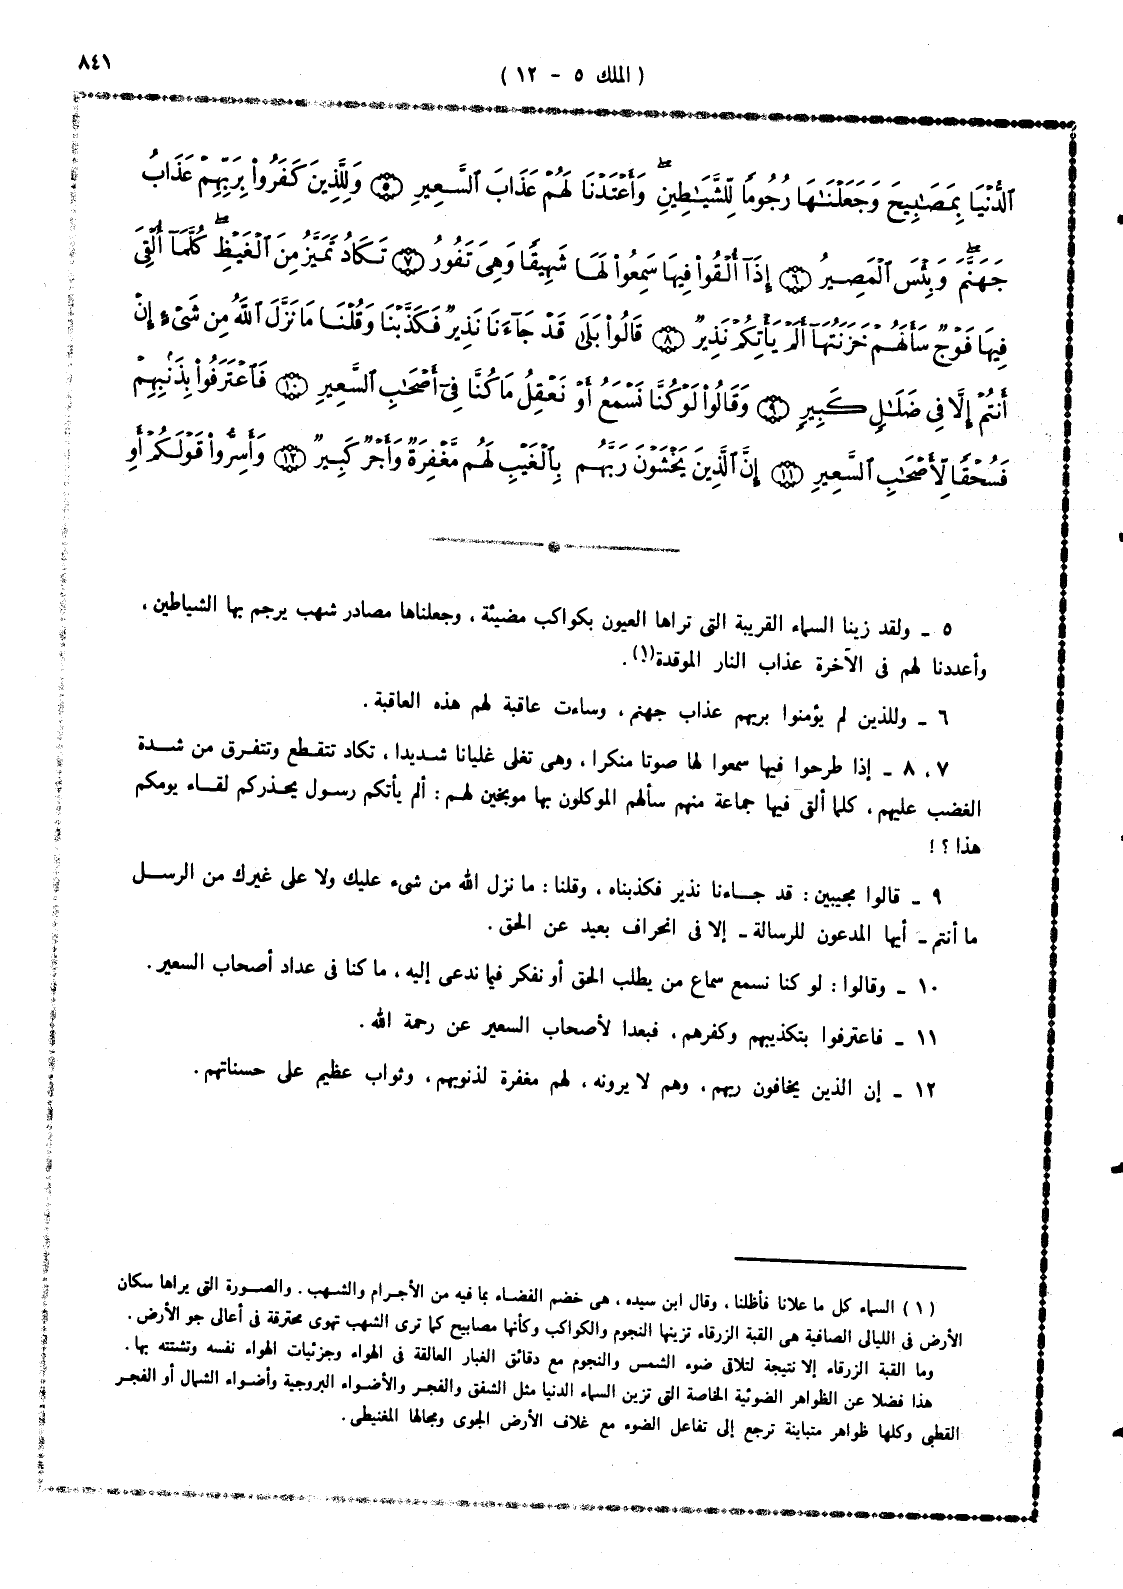 ( الملك ٥ - ١٢ )
٨٤١
ٱلدُّنْيَا بِمَصَٰبِيحَ وَجَعَلْنَٰهَا رُجُومًا لِّلشَّيَٰطِينِۖ وَأَعْتَدْنَا لَهُمْ عَذَابَ ٱلسَّعِيرِ ۝٥ وَلِلَّذِينَ كَفَرُوا۟ بِرَبِّهِمْ عَذَابُ
جَهَنَّمَۖ وَبِئْسَ ٱلْمَصِيرُ ۝٦ إِذَآ أُلْقُوا۟ فِيهَا سَمِعُوا۟ لَهَا شَهِيقًا وَهِىَ تَفُورُ ۝٧ تَكَادُ تَمَيَّزُ مِنَ ٱلْغَيْظِۖ كُلَّمَآ أُلْقِىَ
فِيهَا فَوْجٌ سَأَلَهُمْ خَزَنَتُهَآ أَلَمْ يَأْتِكُمْ نَذِيرٌ ۝٨ قَالُوا۟ بَلَىٰ قَدْ جَآءَنَا نَذِيرٌ فَكَذَّبْنَا وَقُلْنَا مَا نَزَّلَ ٱللَّهُ مِن شَىْءٍ إِنْ
أَنتُمْ إِلَّا فِى ضَلَٰلٍ كَبِيرٍ ۝٩ وَقَالُوا۟ لَوْ كُنَّا نَسْمَعُ أَوْ نَعْقِلُ مَا كُنَّا فِىٓ أَصْحَٰبِ ٱلسَّعِيرِ ۝١٠ فَٱعْتَرَفُوا۟ بِذَنۢبِهِمْ
فَسُحْقًا لِّأَصْحَٰبِ ٱلسَّعِيرِ ۝١١ إِنَّ ٱلَّذِينَ يَخْشَوْنَ رَبَّهُم بِٱلْغَيْبِ لَهُم مَّغْفِرَةٌ وَأَجْرٌ كَبِيرٌ ۝١٢ وَأَسِرُّوا۟ قَوْلَكُمْ أَوِ
٥ ـ ولقد زينا السماء القريبة التى تراها العيون بكواكب مضيئة ، وجعلناها مصادر شهب يرجم بها الشياطين ،
وأعددنا لهم فى الآخرة عذاب النار الموقدة(١) .
٦ ـ وللذين لم يؤمنوا بربهم عذاب جهنم ، وساءت عاقبة لهم هذه العاقبة .
٧ ، ٨ ـ إذا طرحوا فيها سمعوا لها صوتا منكرا ، وهى تغلى غليانا شديدا ، تكاد تتقطع وتتفرق من شدة
الغضب عليهم ، كلما ألقى فيها جماعة منهم سألهم الموكلون بها موبخين لهم : ألم يأتكم رسول يحذركم لقاء يومكم
هذا ؟ !
٩ ـ قالوا مجيبين : قد جاءنا نذير فكذبناه ، وقلنا : ما نزل الله من شىء عليك ولا على غيرك من الرسل
ما أنتم ـ أيها المدعون للرسالة ـ إلا فى انحراف بعيد عن الحق .
١٠ ـ وقالوا : لو كنا نسمع سماع من يطلب الحق أو نفكر فيما ندعى إليه ، ما كنا فى عداد أصحاب السعير .
١١ ـ فاعترفوا بتكذيبهم وكفرهم ، فبعدا لأصحاب السعير عن رحمة الله .
١٢ ـ إن الذين يخافون ربهم ، وهم لا يرونه ، لهم مغفرة لذنوبهم ، وثواب عظيم على حسناتهم .
( ١ ) السماء كل ما علانا فأظلنا ، وقال ابن سيده ، هى خضم الفضاء بما فيه من الأجرام والشهب . والصورة التى يراها سكان
الأرض فى الليالى الصافية هى القبة الزرقاء تزينها النجوم والكواكب وكأنها مصابيح كما ترى الشهب تهوى محترقة فى أعالى جو الأرض .
وما القبة الزرقاء إلا نتيجة لتلاقى ضوء الشمس والنجوم مع دقائق الغبار العالقة فى الهواء وجزئيات الهواء نفسه وتشتته بها .
هذا فضلا عن الظواهر الضوئية الخاصة التى تزين السماء الدنيا مثل الشفق والفجر والأضواء البروجية وأضواء الشمال أو الفجر
القطبى وكلها ظواهر متباينة ترجع إلى تفاعل الضوء مع غلاف الأرض الجوى ومجالها المغنيطى .